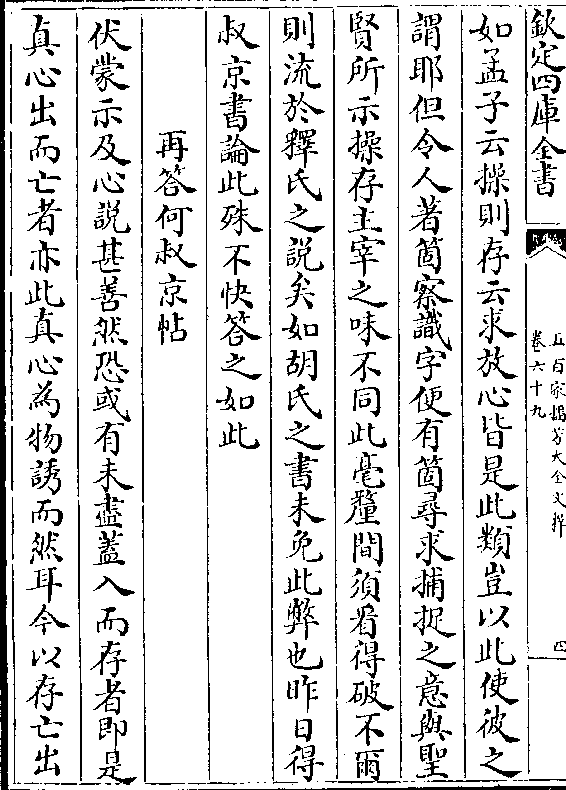 欽定四庫全書
五百家播芳大全文粹
卷六十九
四
如孟子云操則存云求放心皆是此類豈以此使彼之
謂耶但令人著箇察識字便有箇尋求捕捉之意與聖
賢所示操存主宰之味不同此毫釐間須看得破不爾
則流於釋氏之說矣如胡氏之書未免此弊也昨日得
叔京書論此殊不快答之如此
再答何叔京帖
伏蒙示及心説甚善然恐或有未盡蓋入而存者即是
真心出而亡者亦此真心為物誘而然耳今以存亡出